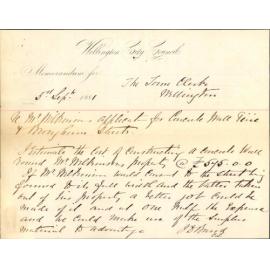 Wellington City Council
Memorandum for
The Town Clerk
Wellington
5th Sept. 1881
Re Mr Wilkinsons application for Concrete Wall Pirie
& Brougham Streets
I estimate the Cost of Constructing a Concrete Wall
round Mr Wilkinsons property @ £595.0.0
If Mr Wilkinson would consent to the street being
formed to its full width and the batter taken
out of his property a better job could be
made of it and at one half the expense
and we could make use of the surplus
material to advantage